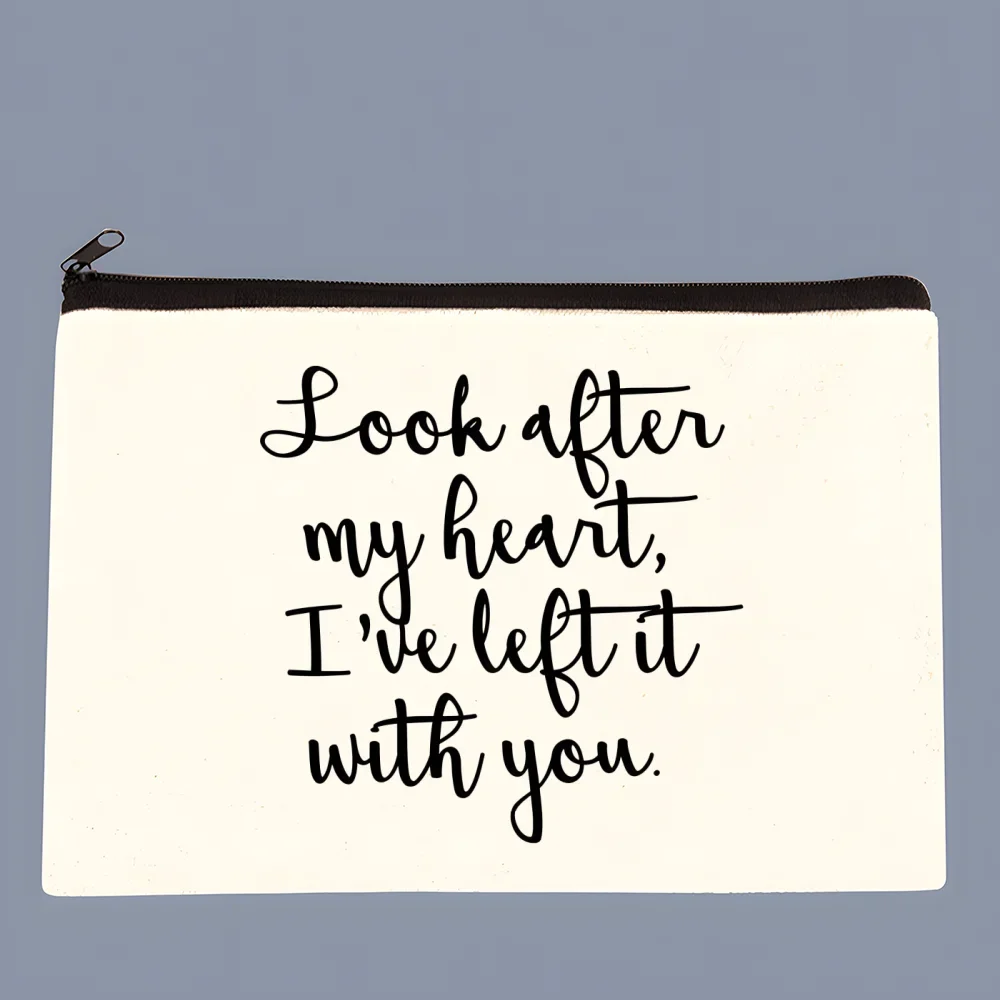 Look after
my heart,
I've left it
with you.